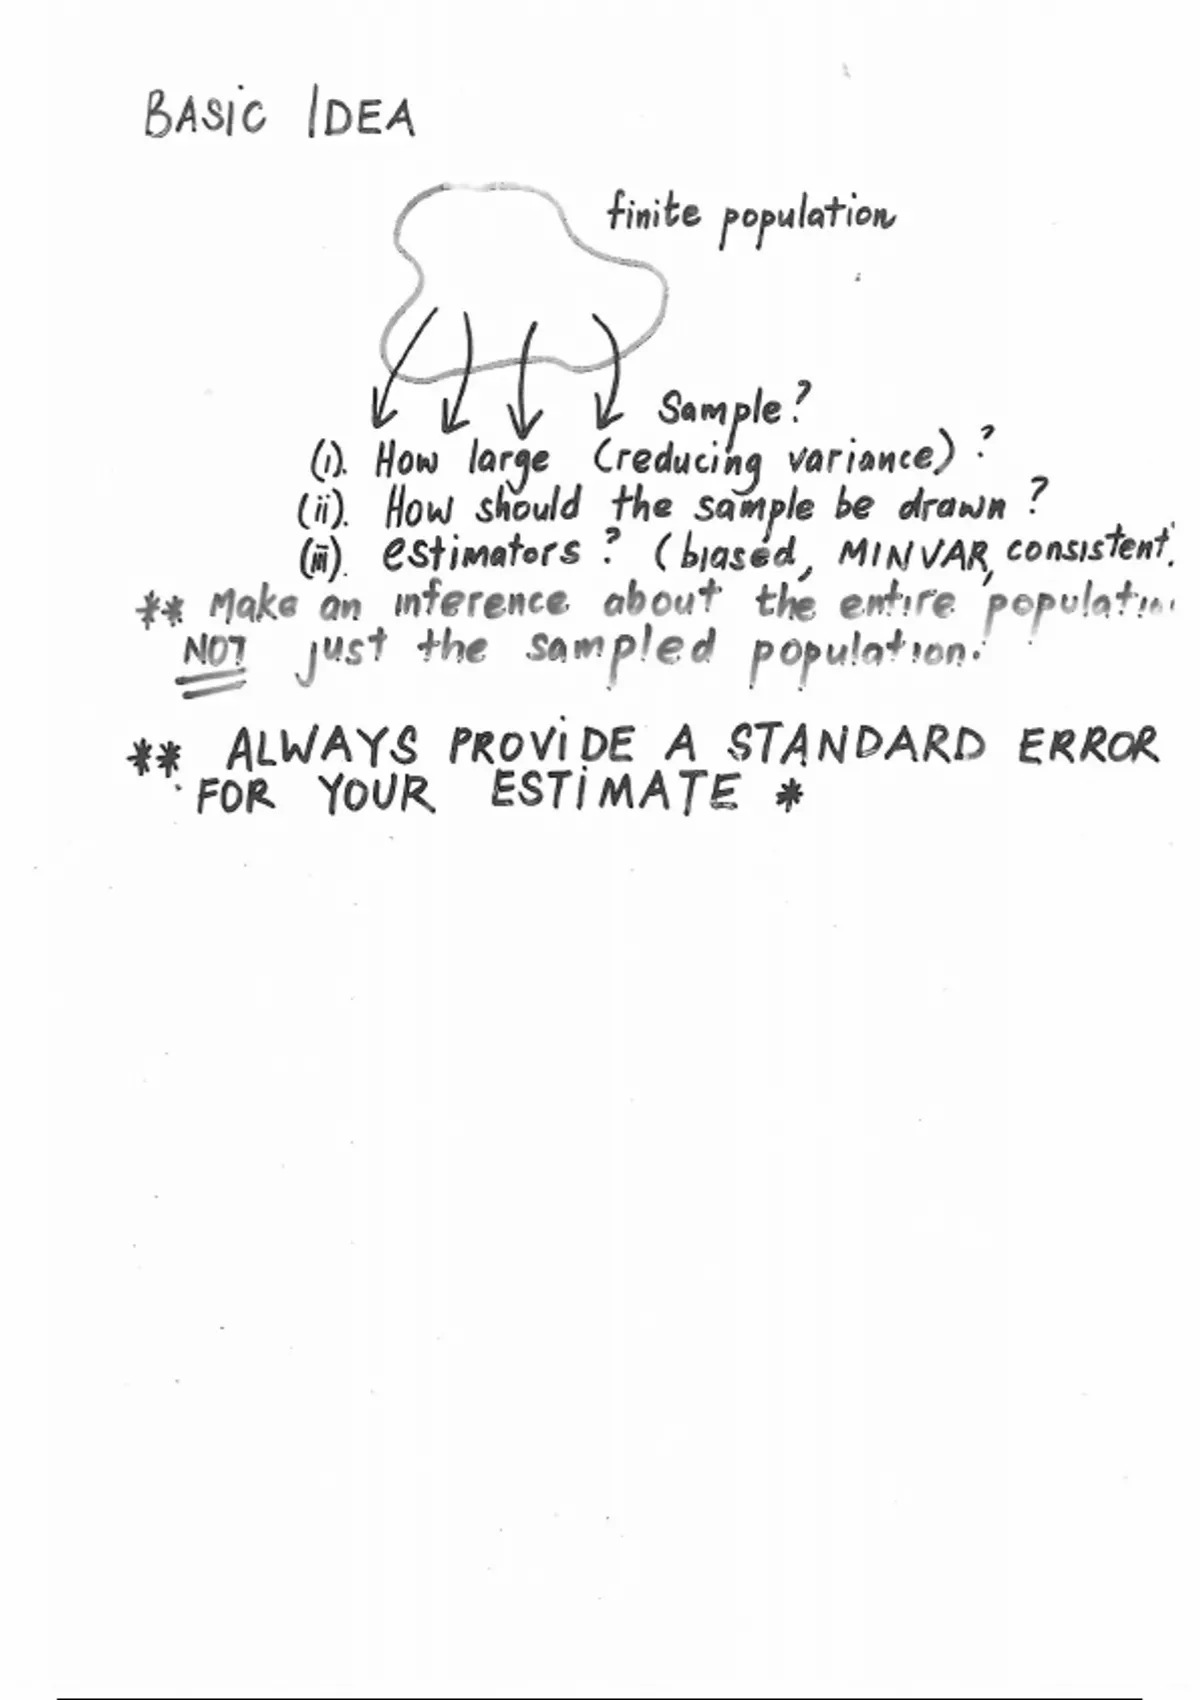 BASIC IDEA
finite population
Sample?
(i). How large (reducing variance)?
(ii). How should the sample be drawn?
(iii). estimators? (biased, MINVAR, consistent.
** Make an inference about the entire
NOT just the sampled population.
** ALWAYS PROVIDE A STANDARD ERROR
FOR YOUR ESTIMATE *